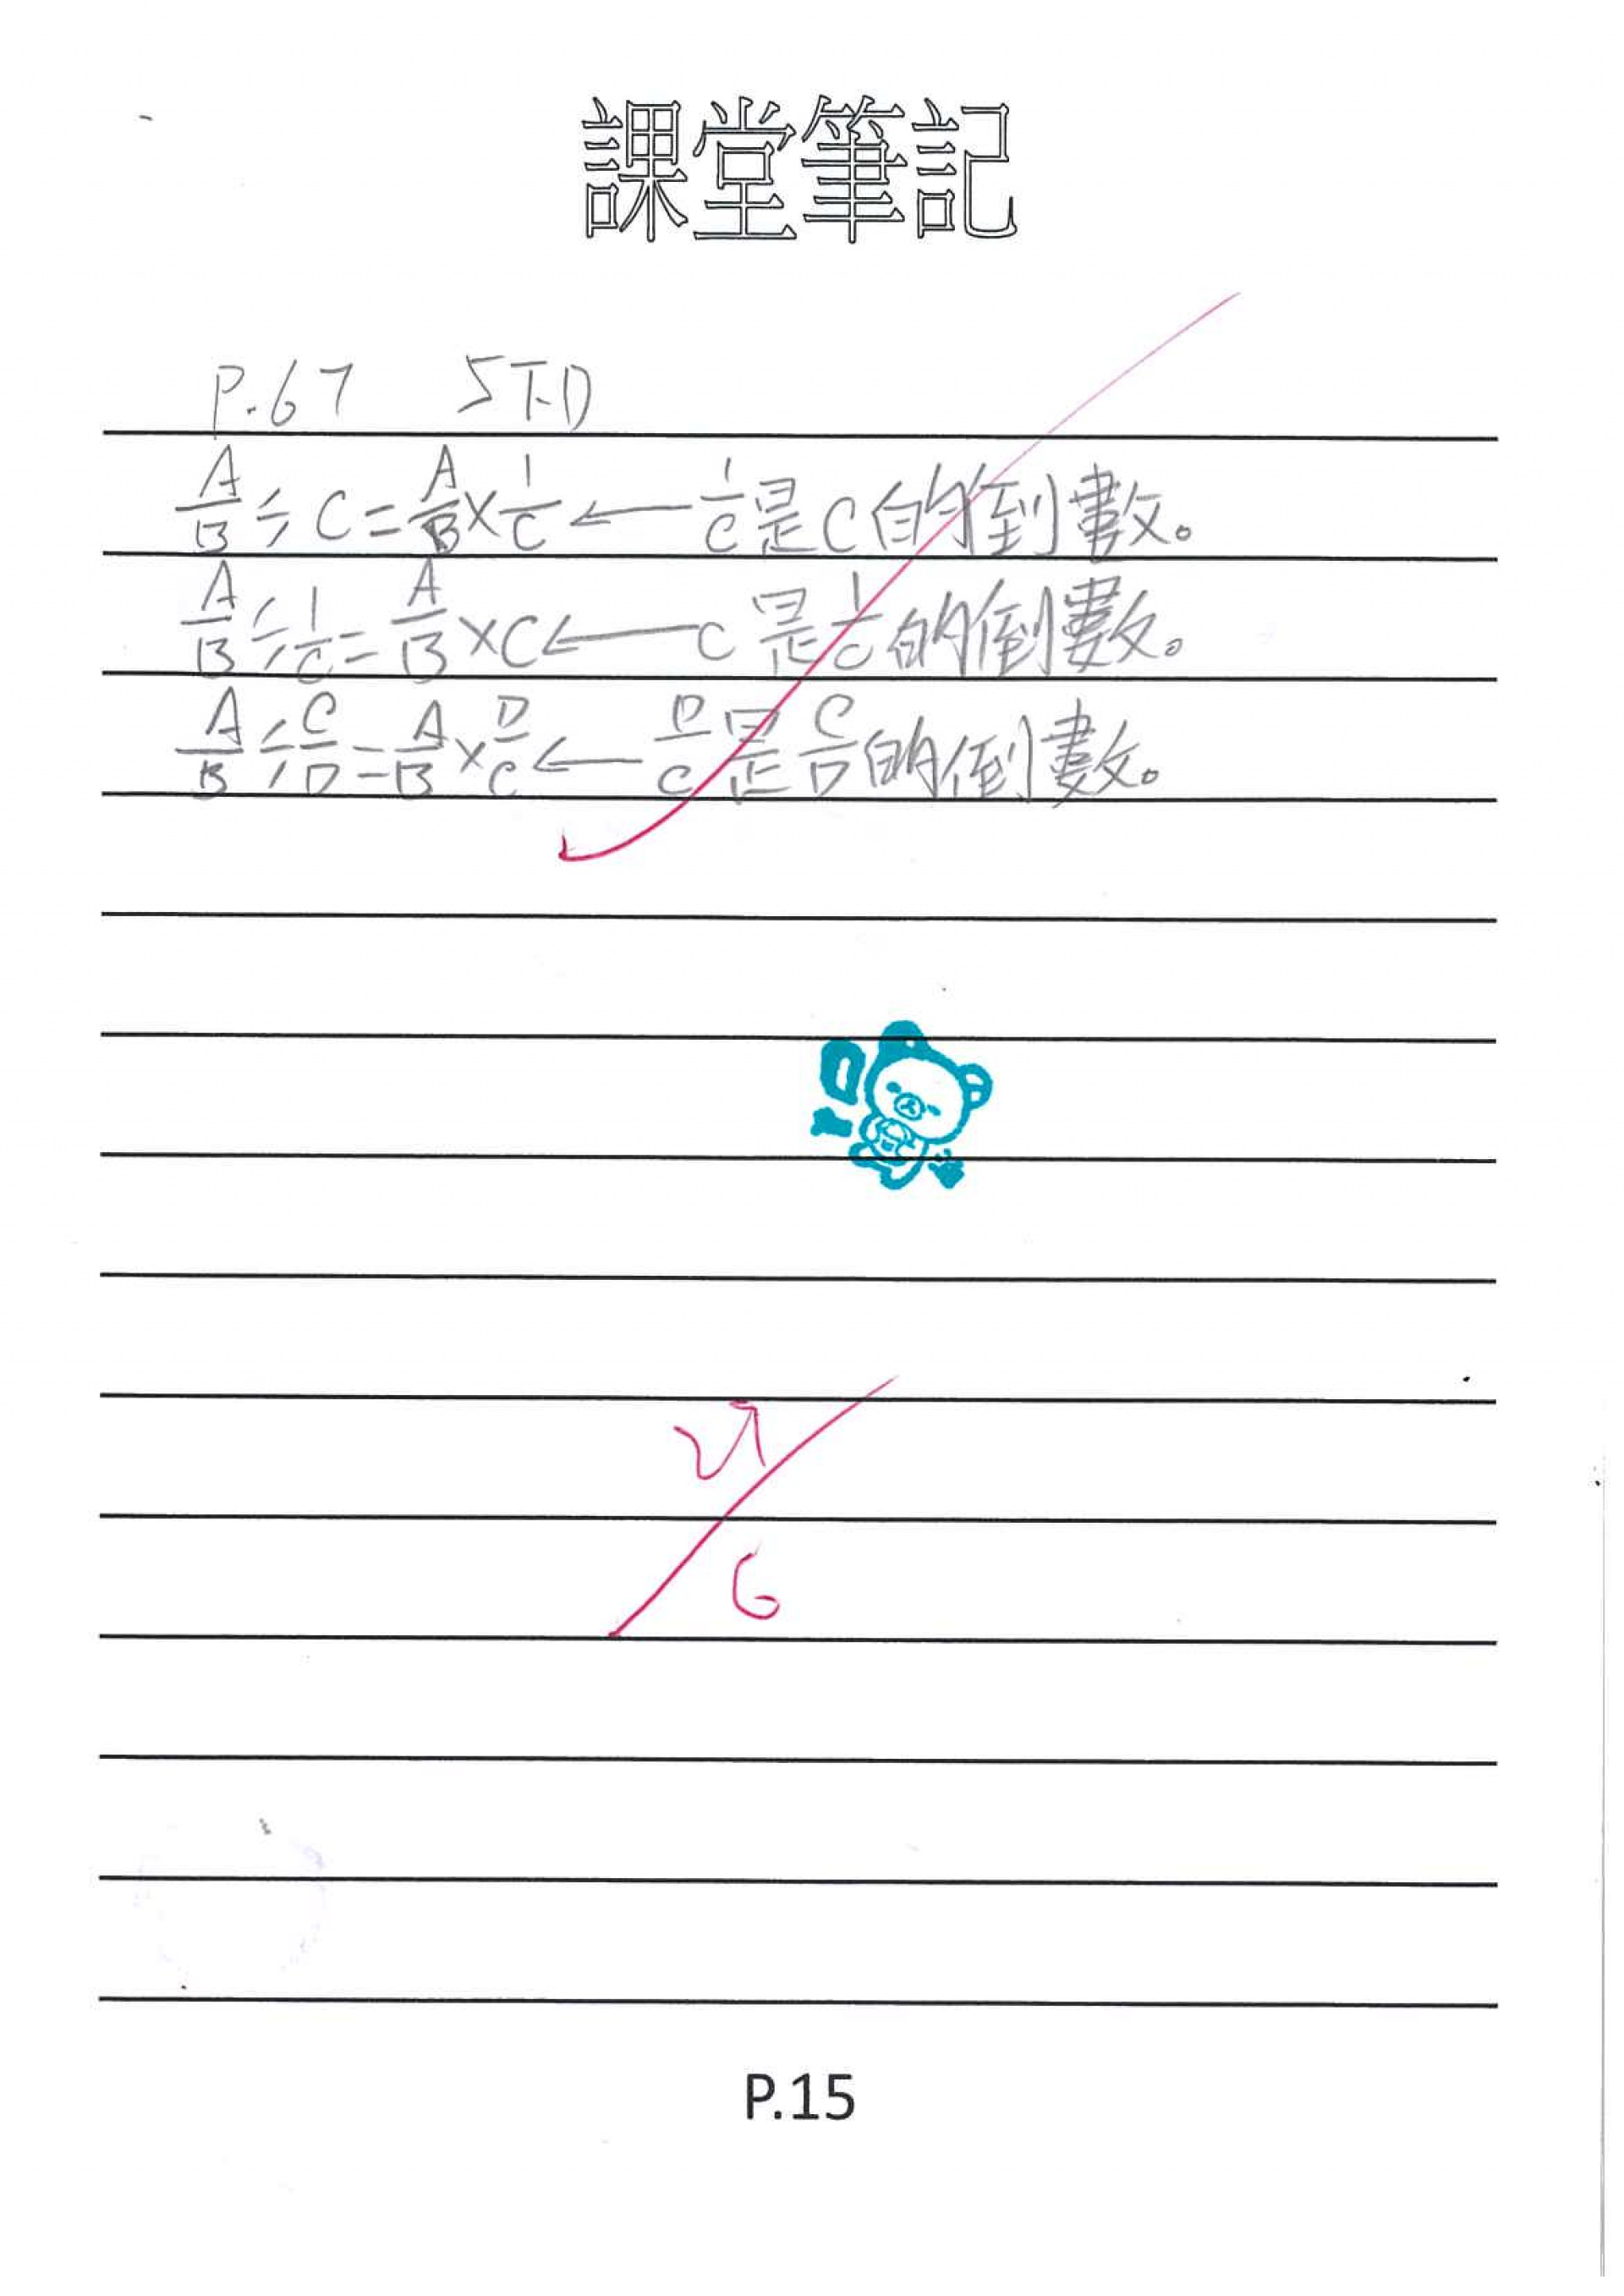 課堂筆記
P.67 5下D
A/B ÷ C = A/B × 1/C ← 1/C是C的倒數。
A/B ÷ 1/C = A/B × C ← C是1/C的倒數。
A/B ÷ C/D = A/B × D/C ← D/C是C/D的倒數。
6
P.15